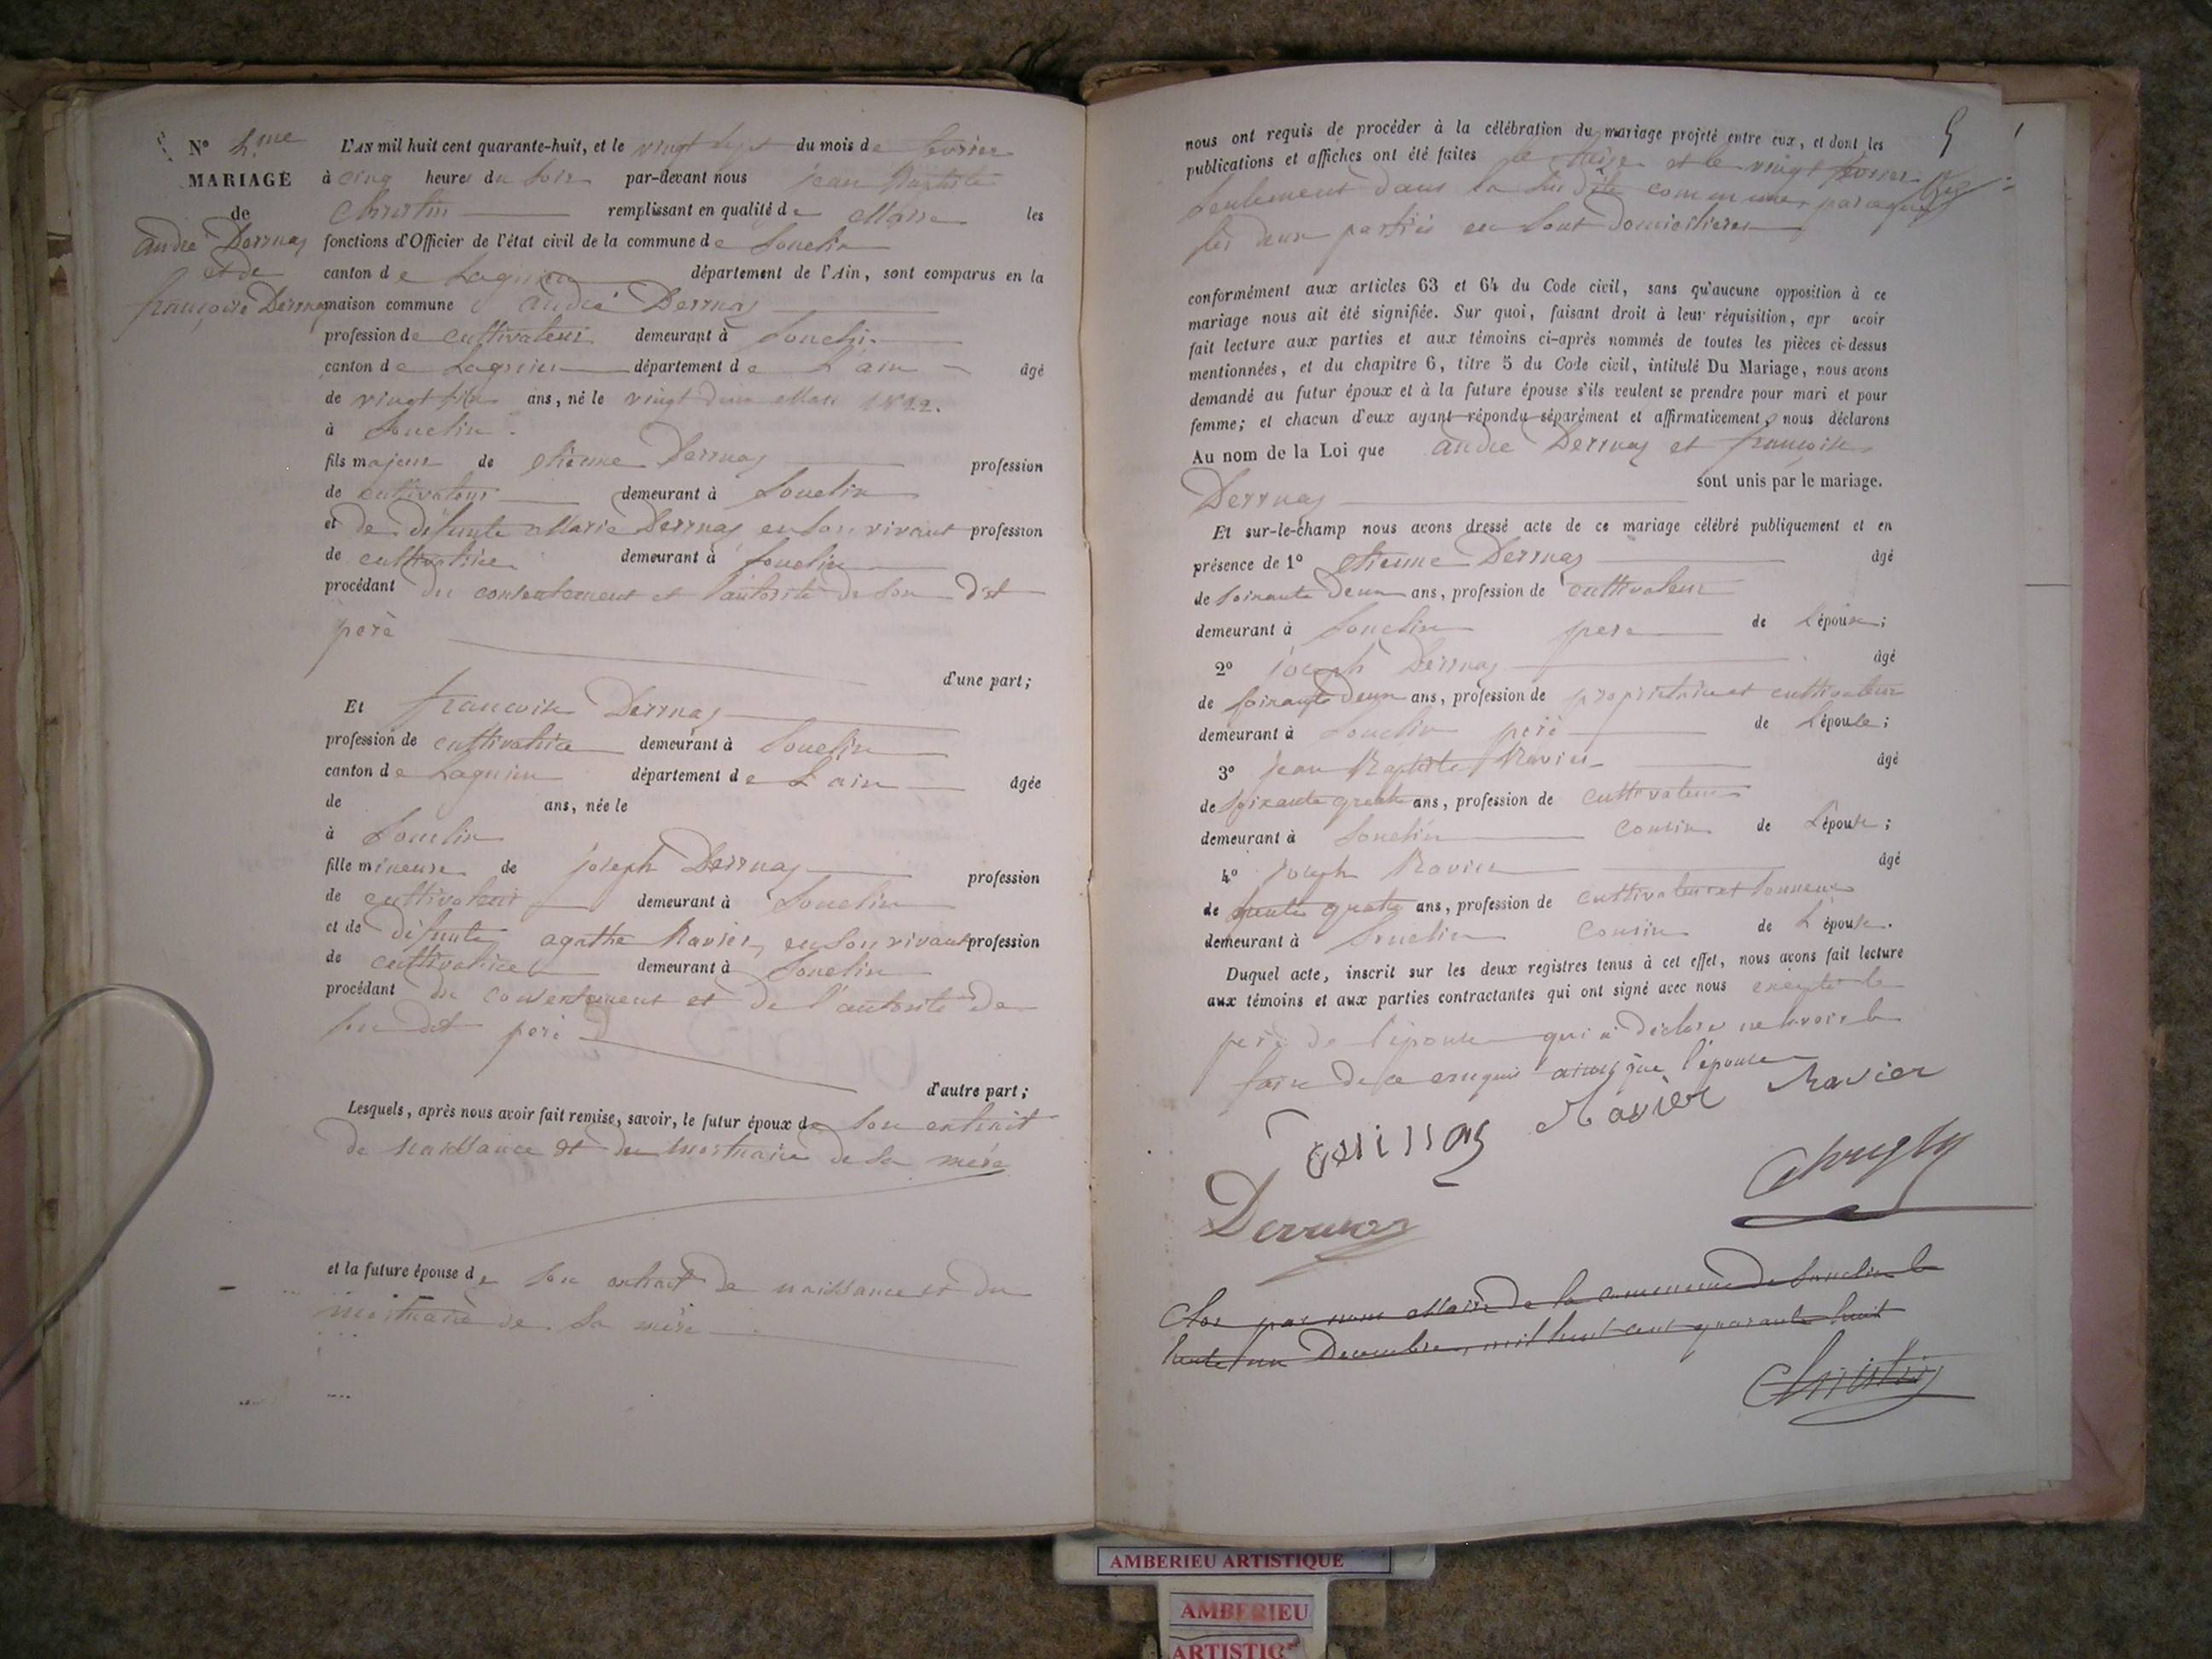 N° 4.me L'AN mil huit cent quarante-huit, et le vingt sept du mois de fevrier
MARIAGE à cinq heures du soir par-devant nous jean Baptiste
de Christin remplissant en qualité de Maire les
andré Derrnas fonctions d'Officier de l'état civil de la commune de Souclin
et de canton de Lagnieu département de l'Ain, sont comparus en la
françoise Derrnas maison commune andré Derrnas
profession de cultivateur demeurant à Souclin
canton de Lagnieu département de L'ain âgé
de vingt ans, né le vingt deux Mars
à Souclin.
fils majeur de etienne Derrnas profession
de cultivateur demeurant à Souclin
et de défunte Marie Derrnas en son vivant profession
de cultivatrice demeurant à Souclin
procédant du consentement et l'autorité de son dit
père
d'une part;
Et francoise Derrnas
profession de cultivatrice demeurant à Souclin
canton de Lagnieu département de L'ain âgée
de ans, née le
à Souclin
fille mineure de joseph Derrnas profession
de cultivateur demeurant à Souclin
et de défunte agathe Ravier, en son vivant profession
de cultivatrice demeurant à Souclin
procédant du consentement et de l'autorité de
son dit père
d'autre part;
Lesquels, après nous avoir fait remise, savoir, le futur époux de son extrait
de naissance et du mortuaire de sa mère
et la future épouse de son extrait de naissance et du
mortuaire de sa mère
5
nous ont requis de procéder à la célébration du mariage projeté entre eux, et dont les
publications et affiches ont été faites le treize et le vingt fevrier
seulement dans la susdite commune parceque
les deux parties en sont domiciliées
conformément aux articles 63 et 64 du Code civil, sans qu'aucune opposition à ce
mariage nous ait été signifiée. Sur quoi, faisant droit à leur réquisition, apr avoir
fait lecture aux parties et aux témoins ci-après nommés de toutes les pièces ci-dessus
mentionnées, et du chapitre 6, titre 5 du Code civil, intitulé Du Mariage, nous avons
demandé au futur époux et à la future épouse s'ils veulent se prendre pour mari et pour
femme; et chacun d'eux ayant répondu séparément et affirmativement, nous déclarons
Au nom de la Loi que andré Derrnas et françoise
Derrnas sont unis par le mariage.
Et sur-le-champ nous avons dressé acte de ce mariage célébré publiquement et en
présence de 1° etienne Derrnas âgé
de soixante deux ans, profession de cultivateur
demeurant à Souclin père de L'époux;
2° joseph Derrnas âgé
de soixante deux ans, profession de propriétaire et cultivateur
demeurant à Souclin père de L'épouse;
3° jean Baptiste Ravier âgé
de soixante quatre ans, profession de cultivateur
demeurant à Souclin cousin de L'épouse;
4° joseph Ravier âgé
de trente quatre ans, profession de cultivateur et tonneur
demeurant à Souclin cousin de L'épouse.
Duquel acte, inscrit sur les deux registres tenus à cet effet, nous avons fait lecture
aux témoins et aux parties contractantes qui ont signé avec nous excepté le
père de l'épouse qui a déclaré ne savoir le
faire de ce enquis ainsi que l'épouse
Ravier Ravier
Derrnas
Clos par nous Maire de la commune de Souclin le
trente un Decembre, mil huit cent quarante huit
Christin
AMBERIEU ARTISTIQUE
AMBERIEU
ARTISTIQ